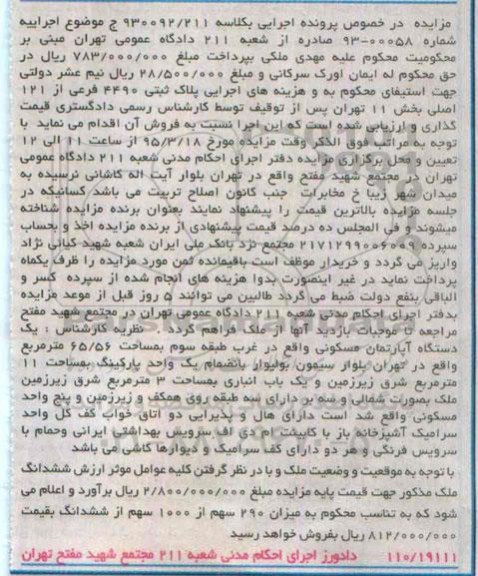 مزایده در خصوص پرونده اجرایی بکلاسه ۹۳۰۰۹۲/۲۱۱ ج موضوع اجراییه
شماره ۹۳۰۰۰۵۸ صادره از شعبه ۲۱۱ دادگاه عمومی تهران مبنی بر
محکومیت محکوم علیه مهدی ملکی بپرداخت مبلغ ۷۸۳/۰۰۰/۰۰۰ ریال در
حق محکوم له ایمان اورک سرکانی و مبلغ ۲۸/۵۰۰/۰۰۰ ریال نیم عشر دولتی
جهت استیفای محکوم به و هزینه های اجرایی پلاک ثبتی ۴۴۹۰ فرعی از ۱۲۱
اصلی بخش ۱۱ تهران پس از توقیف توسط کارشناس رسمی دادگستری قیمت
گذاری و ارزیابی شده است که این اجرا نسبت به فروش آن اقدام می نماید با
توجه به مراتب فوق الذکر وقت مزایده مورخ ۹۵/۳/۱۸ از ساعت ۱۱ الی ۱۲
تعیین و محل برگزاری مزایده دفتر اجرای احکام مدنی شعبه ۲۱۱ دادگاه عمومی
تهران در مجتمع شهید مفتح واقع در تهران بلوار آیت اله کاشانی نرسیده به
میدان شهر زیبا خ مخابرات جنب کانون اصلاح تربیت می باشد کسانیکه در
جلسه مزایده بالاترین قیمت را پیشنهاد نمایند بعنوان برنده مزایده شناخته
میشوند و فی المجلس ده درصد قیمت پیشنهادی از برنده مزایده اخذ و بحساب
سپرده ۲۱۷۱۲۹۹۰۰۶۰۰۹ مجتمع نزد بانک ملی ایران شعبه شهید کیانی نژاد
واریز می گردد و خریدار موظف است باقیمانده ثمن مورد مزایده را ظرف یکماه
پرداخت نماید در غیر اینصورت بدوا هزینه های انجام شده از سپرده کسر و
الباقی بنفع دولت ضبط می گردد طالبین می توانند ۵ روز قبل از موعد مزایده
بدفتر اجرای احکام مدنی شعبه ۲۱۱ دادگاه عمومی تهران در مجتمع شهید مفتح
مراجعه تا موجبات بازدید آنها از ملک فراهم گردد . نظریه کارشناس : یک
دستگاه آپارتمان مسکونی واقع در غرب طبقه سوم بمساحت ۶۵/۵۶ مترمربع
واقع در تهران بلوار سیمون بولیوار بانضمام یک واحد پارکینگ بمساحت ۱۱
مترمربع شرق زیرزمین و یک باب انباری بمساحت ۳ مترمربع شرق زیرزمین
ملک بصورت شمالی و سه بر دارای سه طبقه روی همکف و زیرزمین و پنج واحد
مسکونی واقع شد است دارای هال و پذیرایی دو اتاق خواب کف کل واحد
سرامیک آشپزخانه باز با کابینت ام دی اف سرویس بهداشتی ایرانی وحمام با
سرویس فرنگی و هر دو دارای کف سرامیک و دیوارها کاشی می باشد
با توجه به موقعیت و وضعیت ملک و با در نظر گرفتن کلیه عوامل موثر ارزش ششدانگ
ملک مذکور جهت قیمت پایه مزایده مبلغ ۲/۸۰۰/۰۰۰/۰۰۰ ریال برآورد و اعلام می
شود که به تناسب محکوم به میزان ۲۹۰ سهم از ۱۰۰۰ سهم از ششدانگ بقیمت
۸۱۲/۰۰۰/۰۰۰ ریال بفروش خواهد رسید
۱۱۰/۱۹۱۱۱ دادورز اجرای احکام مدنی شعبه ۲۱۱ مجتمع شهید مفتح تهران